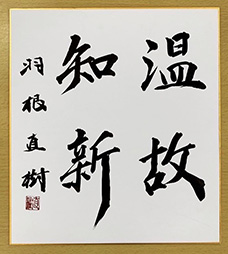 温故
知新
羽根直樹